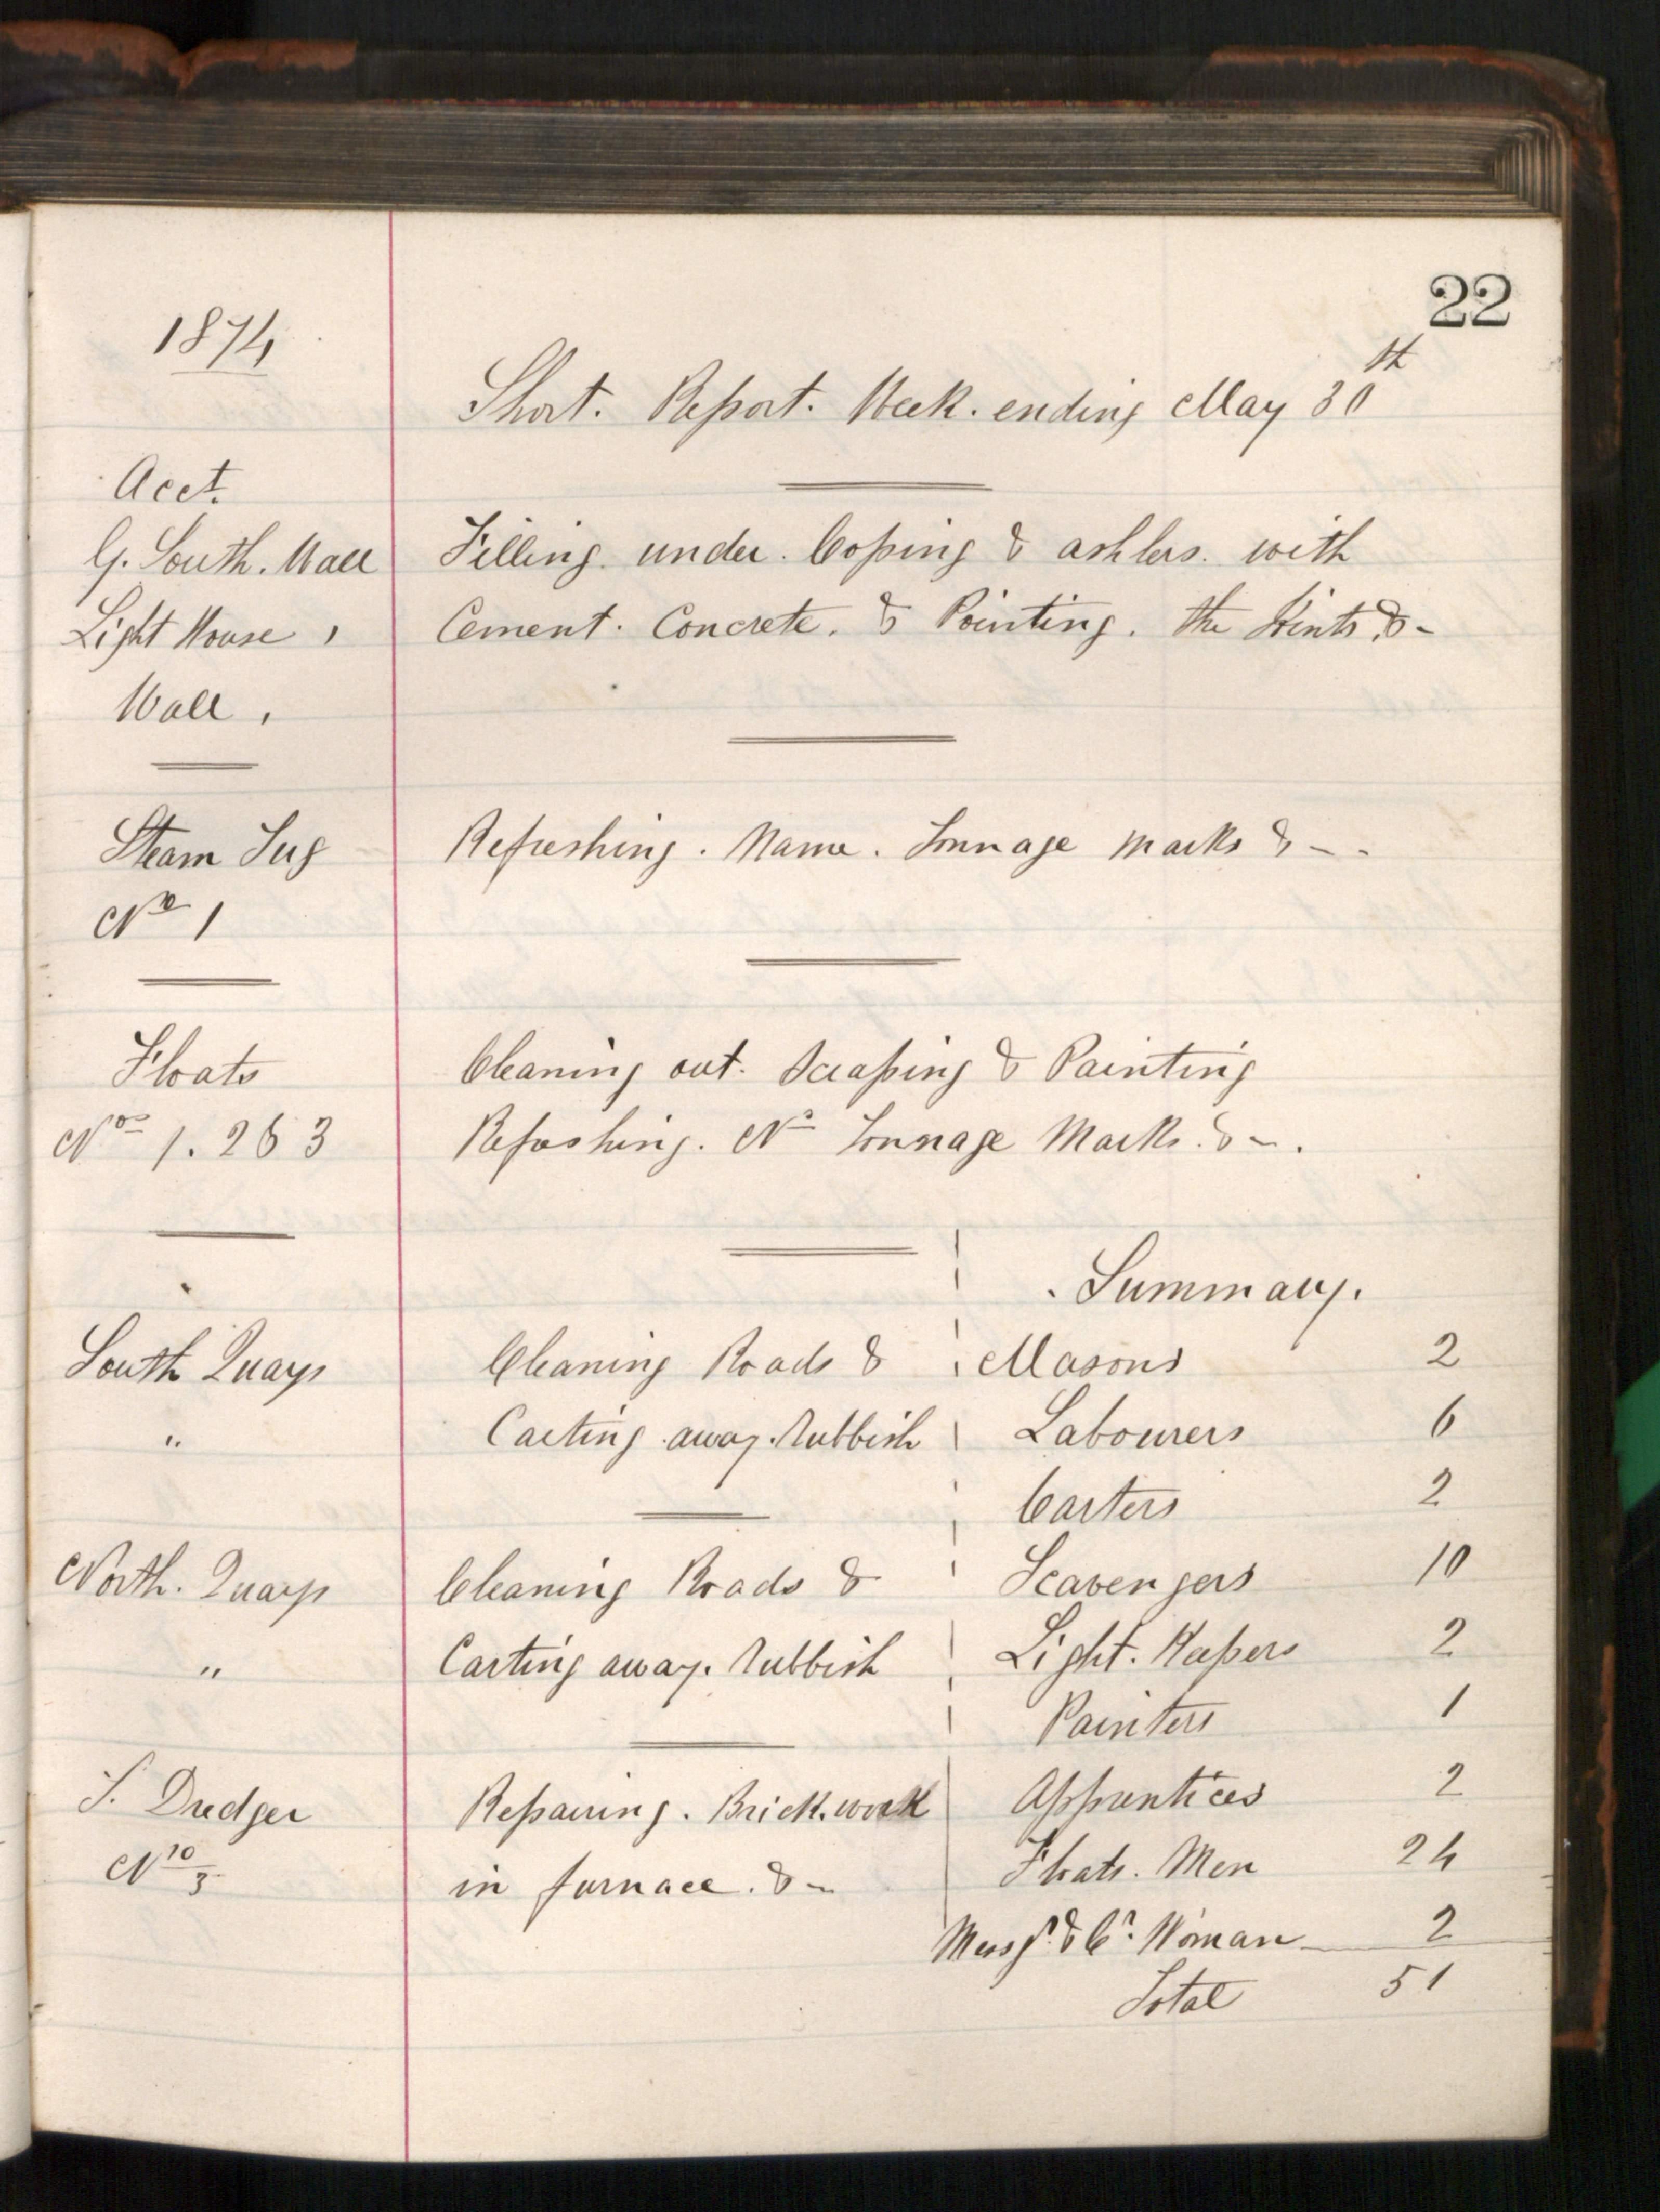 22
1874
Short. Report. Week. ending May 30th
Acct.
G. South. Wall Filling. under. Coping & ashlers. with
Light House, Cement. Concrete. & Pointing. the Joints &-
Wall,
Steam Tug Refreshing. Name. Tonnage Marks &--
No 1
Floats Cleaning out. Scraping & Painting
Nos 1. 2 & 3 Refreshing. No Tonnage Marks. &-.
Summary.
South Quays Cleaning Roads & Masons 2
" Carting away. Rubbish Labourers 6
Carters 2
North. Quays Cleaning Roads & Scavengers 10
" Carting away. Rubbish Light. Keepers 2
Painters 1
S. Dredger Repairing. Brick.work Apprentices 2
No 3. in furnace. &- Floats. Men 24
Messr. & Cr. Woman 2
Total 51